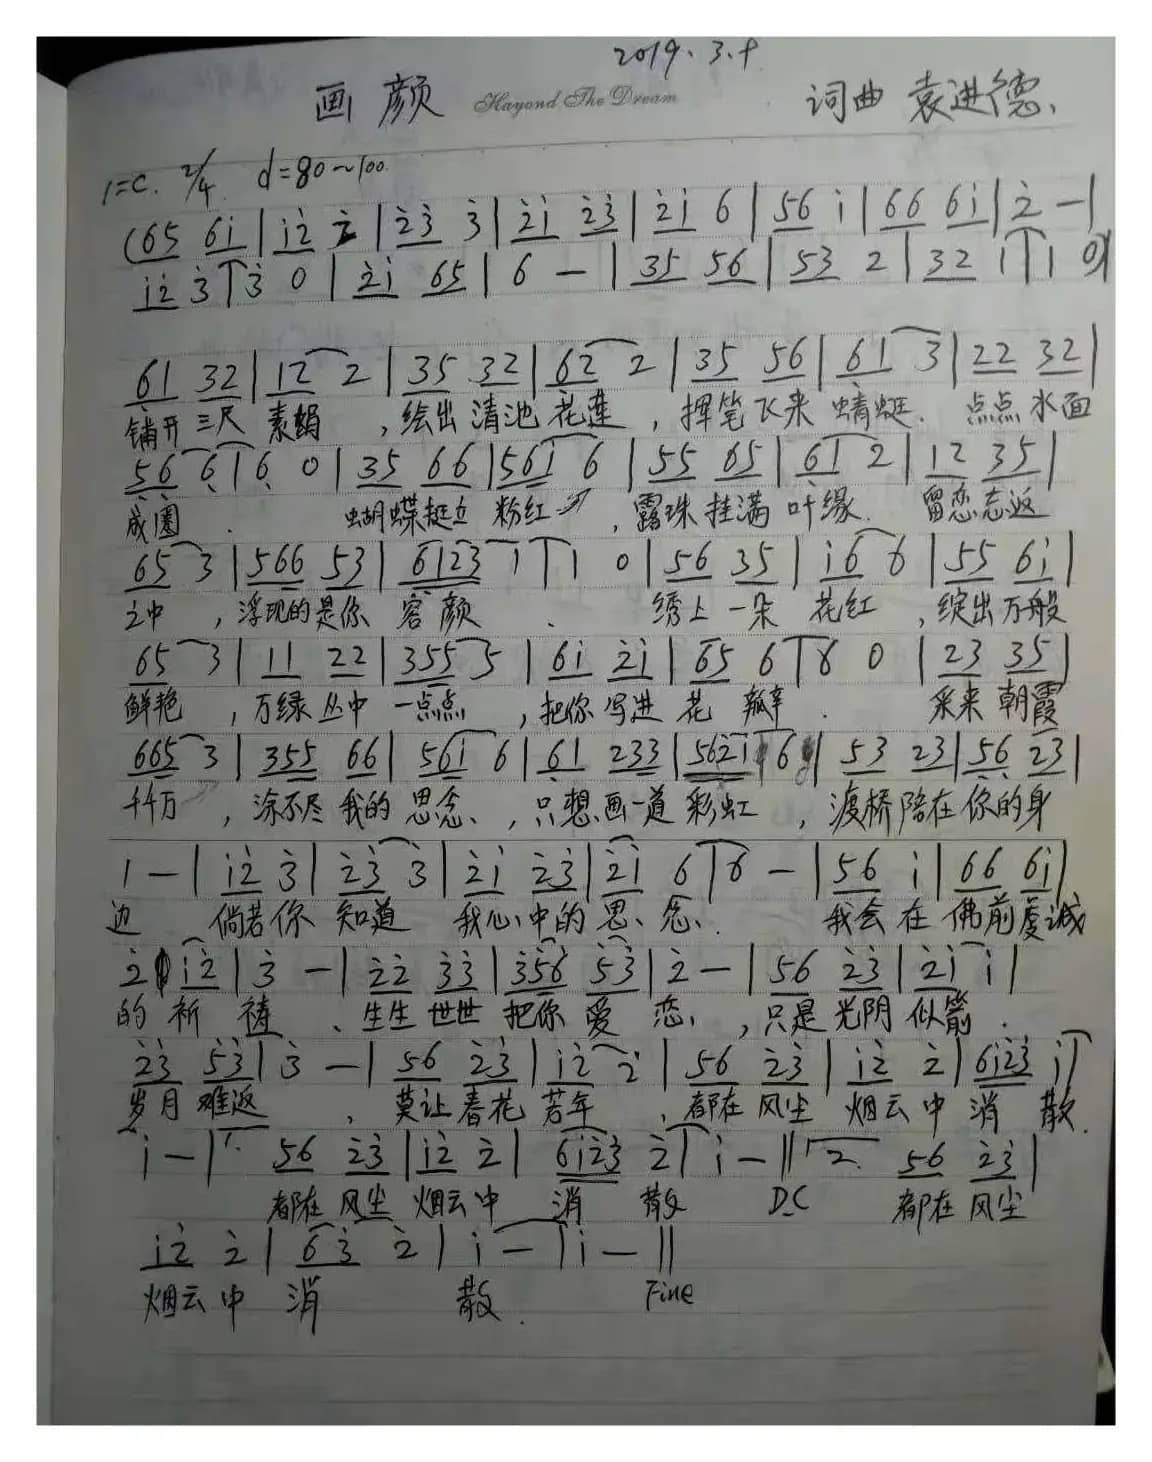 2019.3.9
画颜 Hayond The Dream 词曲 袁进德、
1=C. 2/4 d=80~100
(65 6i | i2 2 | 23 3 | 2i 23 | 2i 6 | 56 i | 66 6i | 2 — |
i2 3 | 3 0 | 2i 65 | 6 — | 35 56 | 53 2 | 32 1 | 1 0)
61 32 | 12 2 | 35 32 | 62 2 | 35 56 | 61 3 | 22 32 |
铺开三尺 素绢 ，绘出清池 花莲 ，挥笔飞来 蜻蜓. 点点水面
56 6 | 6 0 | 35 66 | 561 6 | 55 65 | 61 2 | 12 35 |
成圈 . 蝴蝶挺立 粉红 ，露珠挂满 叶缘. 留恋忘返
65 3 | 566 53 | 6123 1 | 1 0 | 56 35 | i6 6 | 55 6i |
之中 ，浮现的是你 容颜 . 绣上一朵 花红 ，绽出万般
65 3 | 11 22 | 355 5 | 6i 2i | 65 6 | 6 0 | 23 35 |
鲜艳 ，万绿丛中 一点点 ，把你写进 花 瓣 . 采来朝霞
665 3 | 355 66 | 561 6 | 61 233 | 562i 6 | 53 23 | 56 23 |
千千万 ，涂不尽 我的 思念、，只想画一道 彩虹 ，渡桥陪在你的身
1 — | i2 3 | 23 3 | 2i 23 | 2i 6 | 6 — | 56 i | 66 6i |
边 倘若你 知道 我心中的 思 念、. 我会 在 佛前虔诚
2 i2 | 3 — | 22 33 | 356 53 | 2 — | 56 23 | 2i i |
的 祈 祷 、生生世世 把你 爱 恋、，只是光阴 似箭 .
23 53 | 3 — | 56 23 | i2 2 | 56 23 | i2 2 | 6i23 i |
岁月难返 ，莫让春花 若年 ，都在风尘 烟云中 消 散.
i — | 1. 56 23 | i2 2 | 6i23 2 | i — || 2. 56 23 |
都在风尘 烟云中 消 散 D.C 都在风尘
i2 2 | 63 2 | i — | i — ||
烟云中 消 散 . Fine